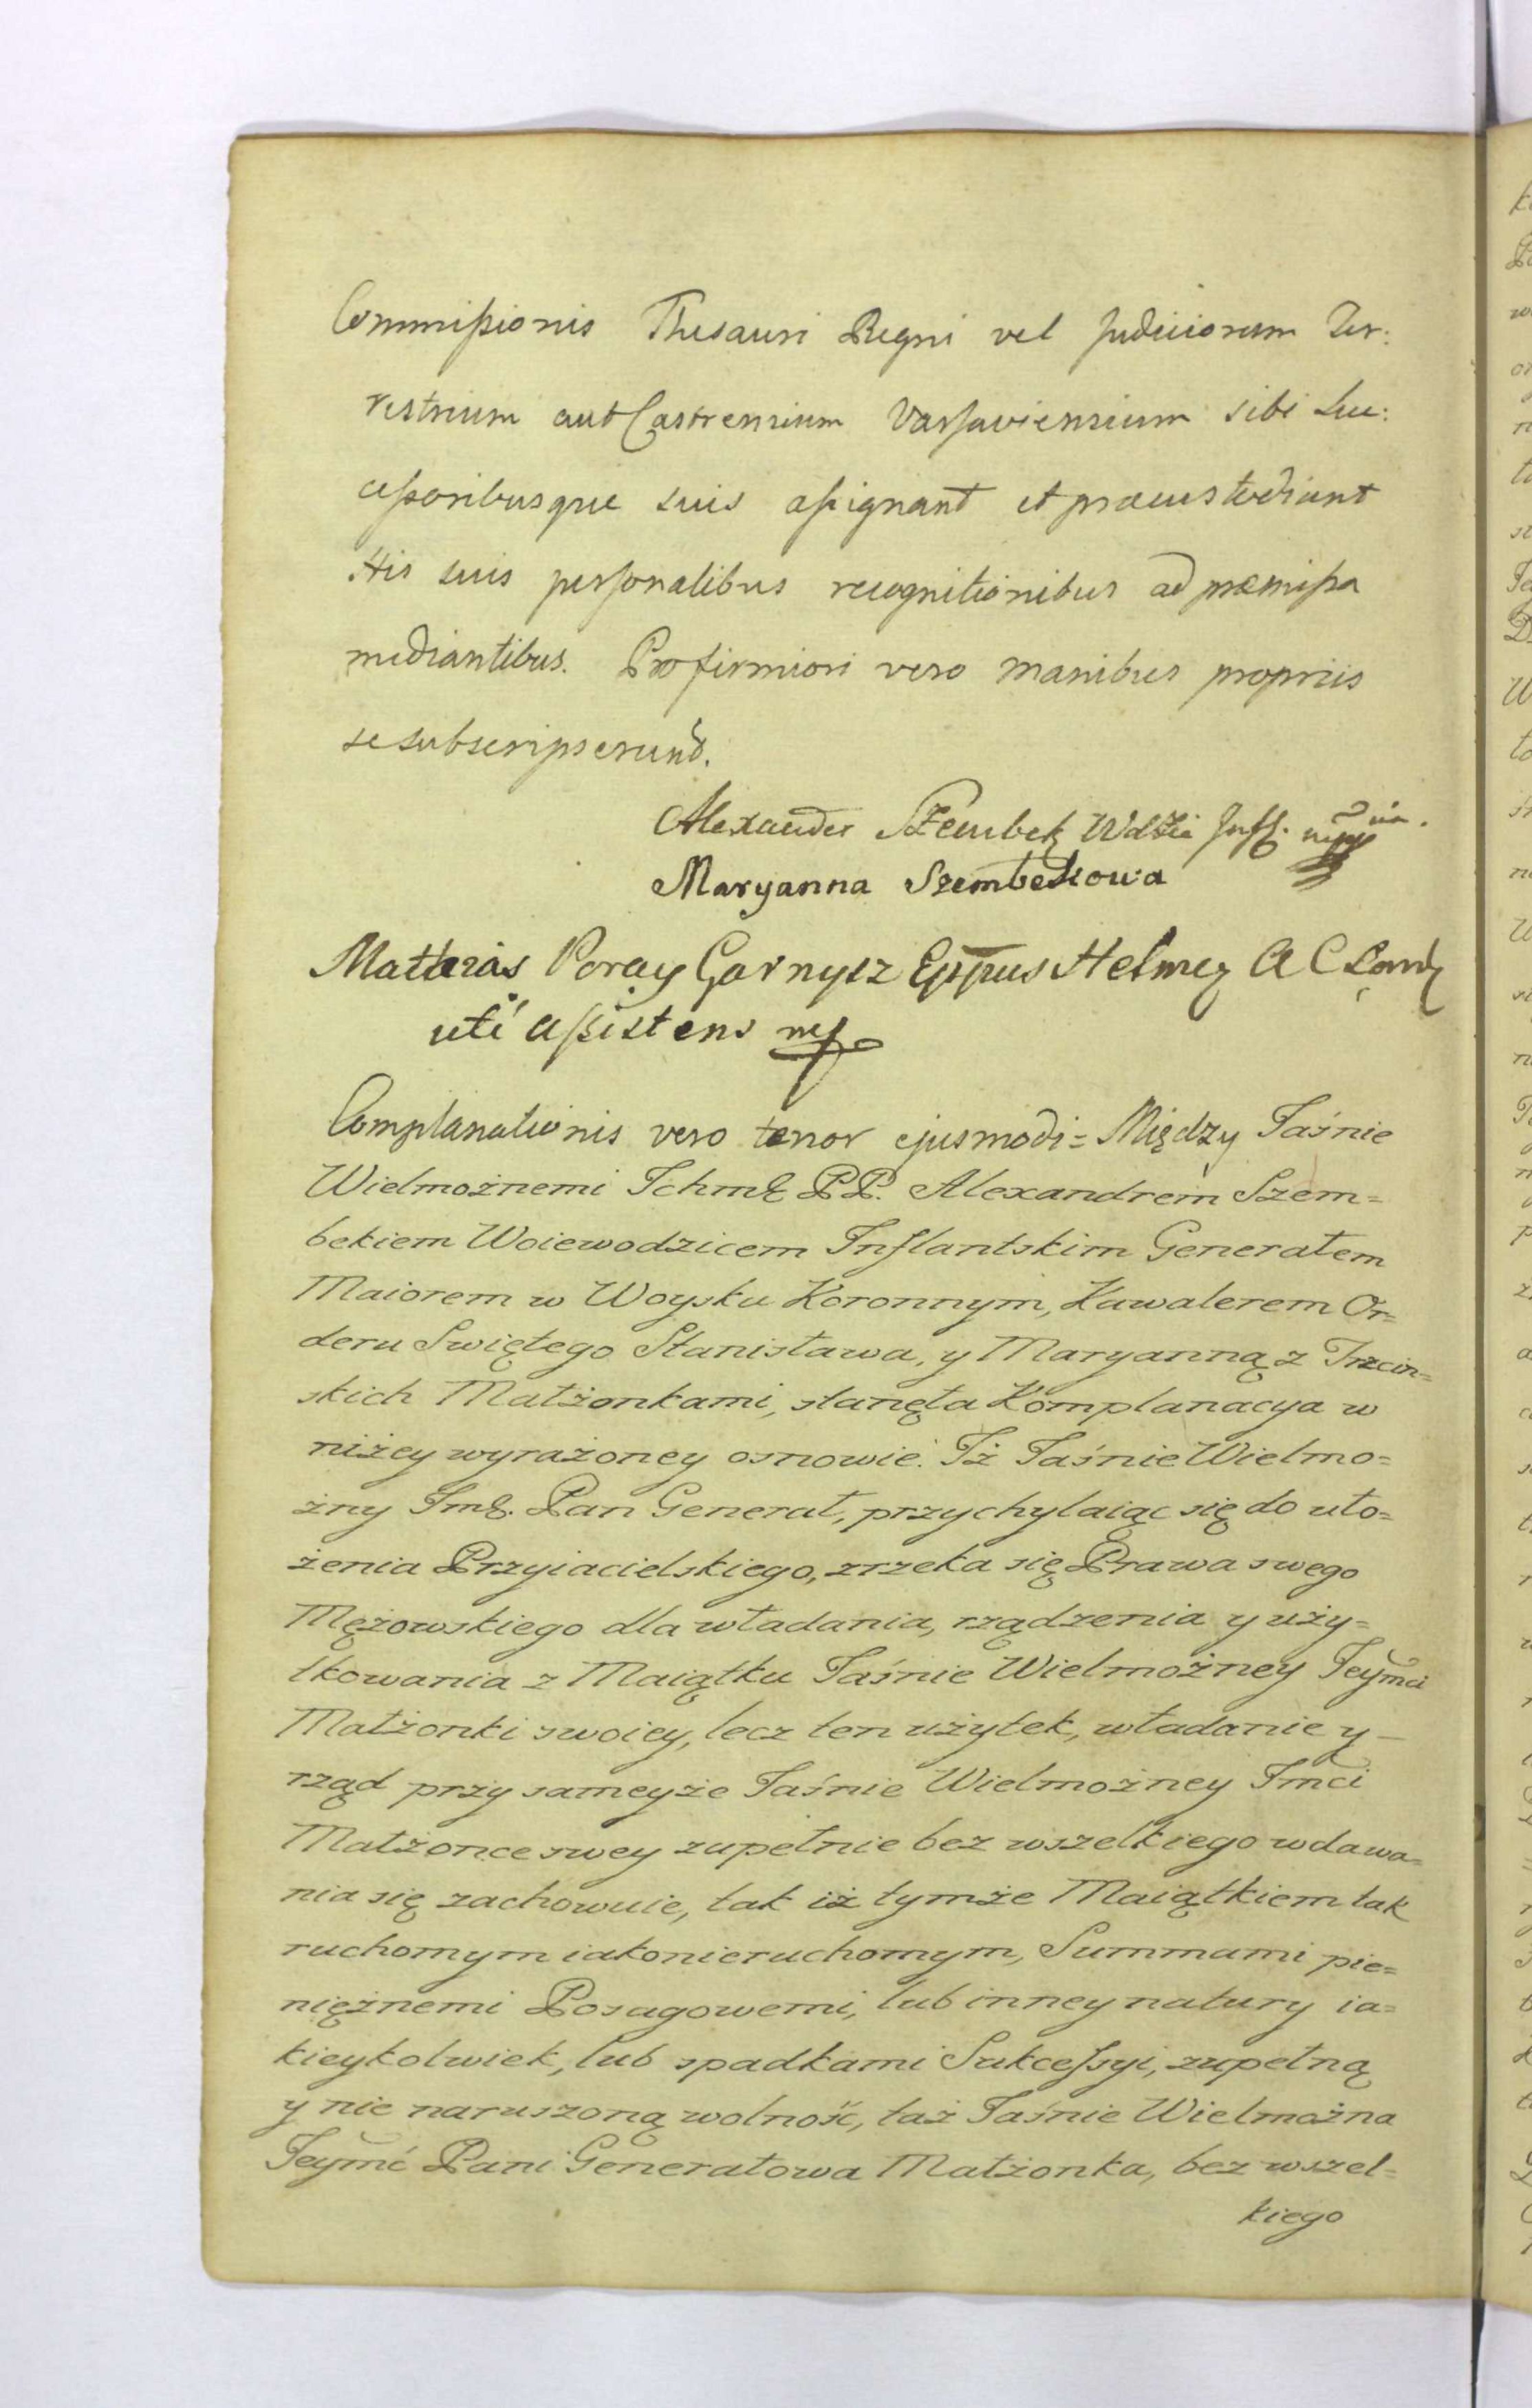 Commißionis Thesauri Regni vel Judiciorum Ter:
restrium aut Castrensium Varsaviensium sibi Suc:
ceßoribusque suis aßignant et præcustodiunt
His suis personalibus recognitionibus ad præmißa
mediantibus. Pro firmiori vero manibus propriis
se subscripserunt.
Alexander Szembek Wdzic Infl. mpp
Maryanna Szembekowa
Matthias Poray Garnysz Eppus Helmez A C
uti aßistens mp
Complanationis vero tenor ejusmodi = Między Jaśnie
Wielmożnemi Ichmć PP. Alexandrem Szem=
bekiem Woiewodzicem Inflantskim Generałem
Maiorem w Woysku Koronnym, Kawalerem Or=
deru Swiętego Stanisława, y Maryanną z Trzcin=
skich Małżonkami, stanęła Komplanacya w
niżey wyrażoney osnowie. Iż Jaśnie Wielmo=
żny Jmć. Pan Generał, przychylaiąc się do uło=
żenia Przyiacielskiego, zrzeka się Prawa swego
Mężowskiego dla władania, rządzenia y uży=
tkowania z Maiątku Jaśnie Wielmożney Jeymci
Małżonki swoiey, lecz ten użytek, władanie y
rząd przy sameyże Jaśnie Wielmożney Jmci
Małżonce swey zupełnie bez wszelkiego wdawa=
nia się zachowuie, tak iż tymże Maiątkiem tak
ruchomym iako nieruchomym, Summami pie=
niężnemi Posagowemi, lub inney natury ia=
kieykolwiek, lub spadkami Sukceſsyi, zupełną
y nie naruszoną wolność, taż Jaśnie Wielmożna
Jeymć Pani Generałowa Małżonka, bez wszel=
kiego